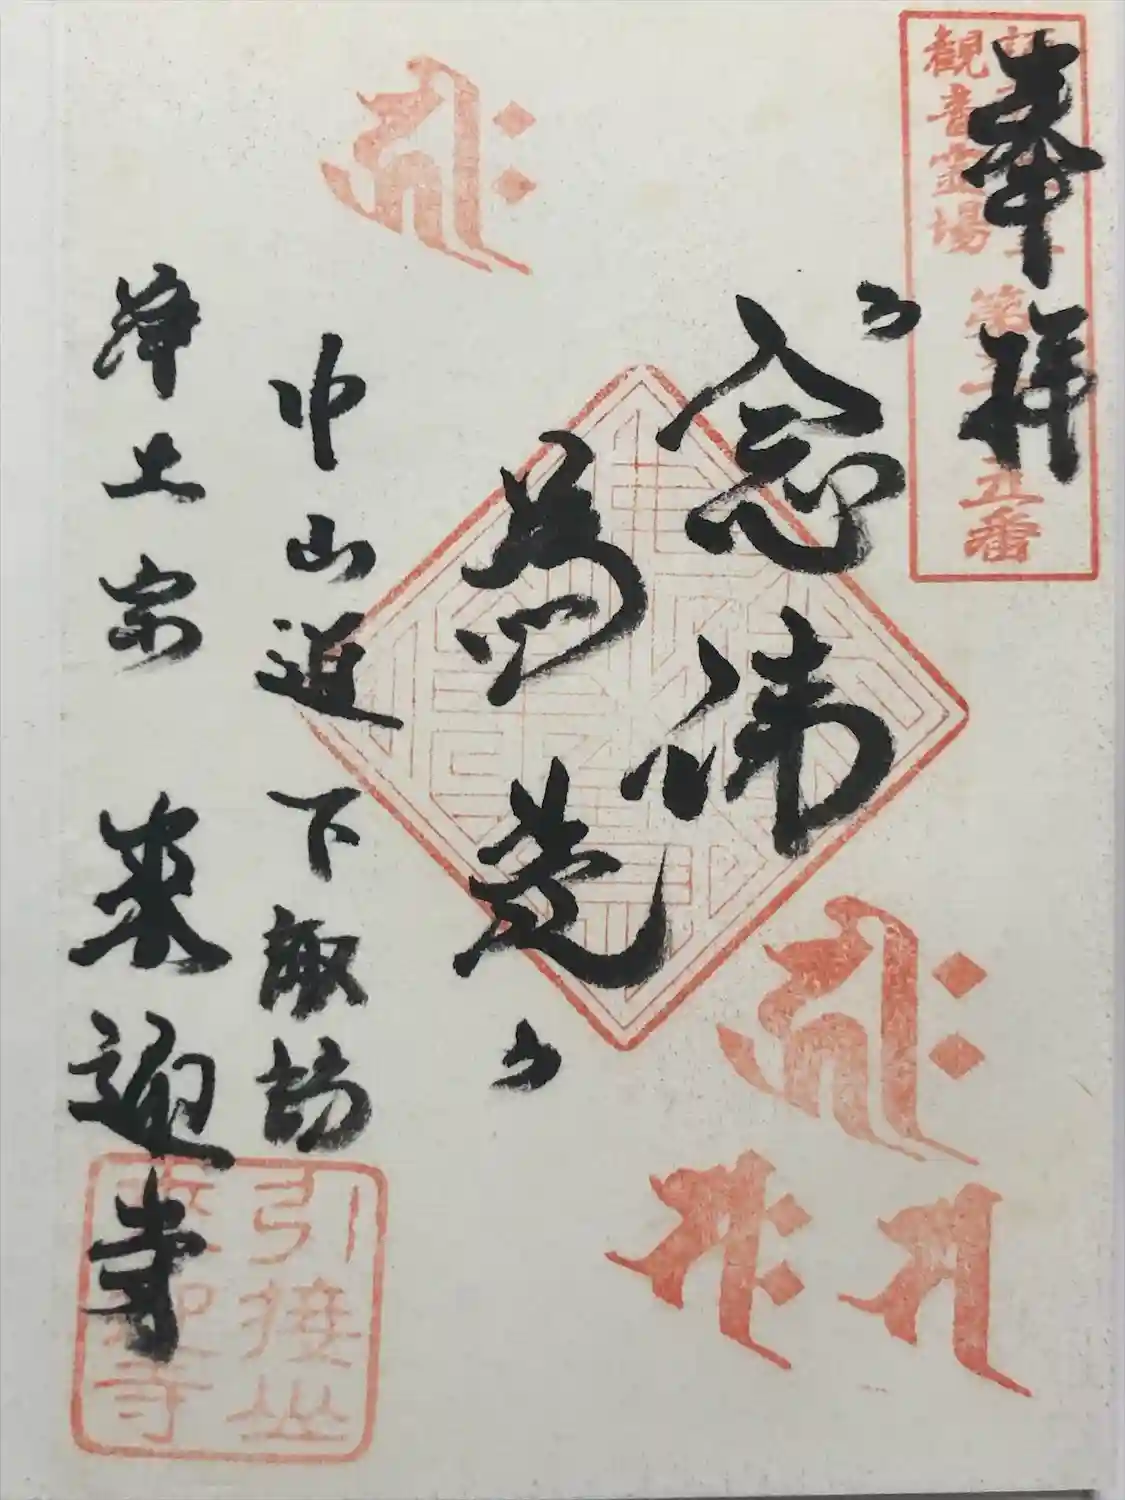 奉拝
観音霊場
五番
念佛
為先
中山道 下諏訪
浄土宗 来迎寺
引接山
来迎寺